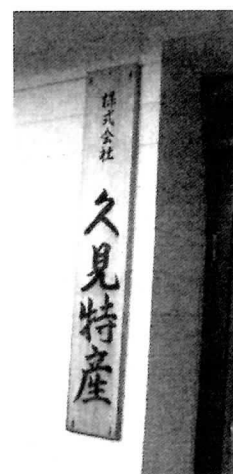 株式会社
久見特産